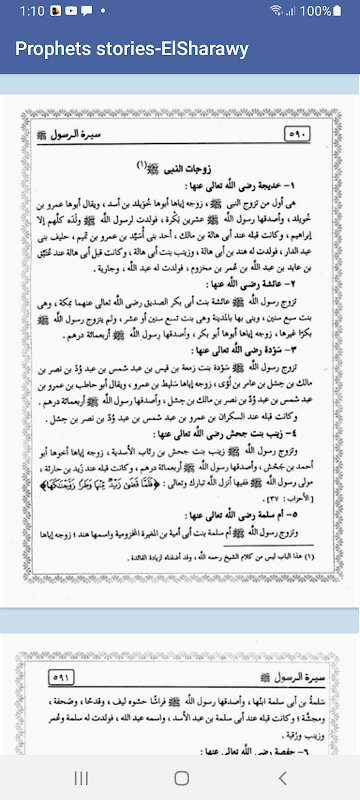 1:10
100%
Prophets stories-ElSharawy
٥٩٠
سيرة الرسول ﷺ
زوجات النبى ﷺ(١)
١- خديجة رضى اللَّه تعالى عنها :
هى أول من تزوج النبى ﷺ ، زوجه إياها أبوها خُوَيلد بن أسد ، ويقال أبوها عمرو بن
خويلد ، وأصدقها رسول اللَّه ﷺ عشرين بَكرة ، فولدت لرسول اللَّه ﷺ ولَدَه كلَّهم إلا
إبراهيم ، وكانت قبله عند أبى هالة بن مالك ، أحد بنى أُسَيِّد بن عمرو بن تميم ، حليف بنى
عبد الدار ، فولدت له هند بن أبى هالة ، وزينب بنت أبى هالة ، وكانت قبل أبى هالة عند عُتَيِّق
بن عابد بن عبد اللَّه بن عُمر بن مخزوم ، فولدت له عبد اللَّه ، وجارية .
٢- عائشة رضى اللَّه تعالى عنها :
تزوج رسول اللَّه ﷺ عائشة بنت أبى بكر الصديق رضى اللَّه تعالى عنهما بمكة ، وهى
بنت سبع سنين ، وبنى بها بالمدينة وهى بنت تسع سنين أو عشر ، ولم يتزوج رسول اللَّه ﷺ
بكرًا غيرها ، زوجه إياها أبوها أبو بكر ، وأصدقها رسول اللَّه ﷺ أربعمائة درهم .
٣- سَوْدة رضى اللَّه تعالى عنها :
تزوج رسول اللَّه ﷺ سَوْدة بنت زمعة بن قيس بن عبد شمس بن عبد وُدّ بن نصر بن
مالك بن حِسْل بن عامر بن لُؤى ، زوجه إياها سَليط بن عمرو ، ويقال أبو حاطب بن عمرو بن
عبد شمس بن عبد وُدّ بن نصر بن مالك بن حِسْل ، وأصدقها رسول اللَّه ﷺ أربعمائة درهم .
وكانت قبله عند السكران بن عمرو بن عبد شمس بن عبد وُدّ بن نصر بن حِسْل .
٤- زينب بنت جحش رضى اللَّه تعالى عنها :
وتزوج رسول اللَّه ﷺ زينب بنت جحش بن رئاب الأسدية ، زوجه إياها أخوها أبو
أحمد بن جَحْش ، وأصدقها رسول اللَّه ﷺ أربعمائة درهم ، وكانت قبله عند زيد بن حارثة ،
مولى رسول اللَّه ﷺ ففيها أنزل اللَّه تبارك وتعالى : ﴿فَلَمَّا قَضَىٰ زَيْدٌ مِّنْهَا وَطَرًا زَوَّجْنَٰكَهَا﴾
[الأحزاب : ٣٧] .
٥- أم سلمة رضى اللَّه تعالى عنها :
وتزوج رسول اللَّه ﷺ أم سلمة بنت أبى أمية بن المغيرة المخزومية واسمها هند ؛ زوجه إياها
(١) هذا الباب ليس من كلام الشيخ رحمه اللَّه ، وقد أضفناه لزيادة الفائدة .
٥٩١
سيرة الرسول ﷺ
سَلَمةُ بن أبى سلمة ابنُها ، وأصدقها رسول اللَّه ﷺ فراشًا حشوه ليف ، وقدحًا ، وصَحفة ،
ومجشَّة ؛ وكانت قبله عند أبى سلمة بن عبد الأسد ، واسمه عبد الله ، فولدت له سلمة وعُمر
وزينب ورُقية .
٦- حفصة رضى اللَّه تعالى عنها :